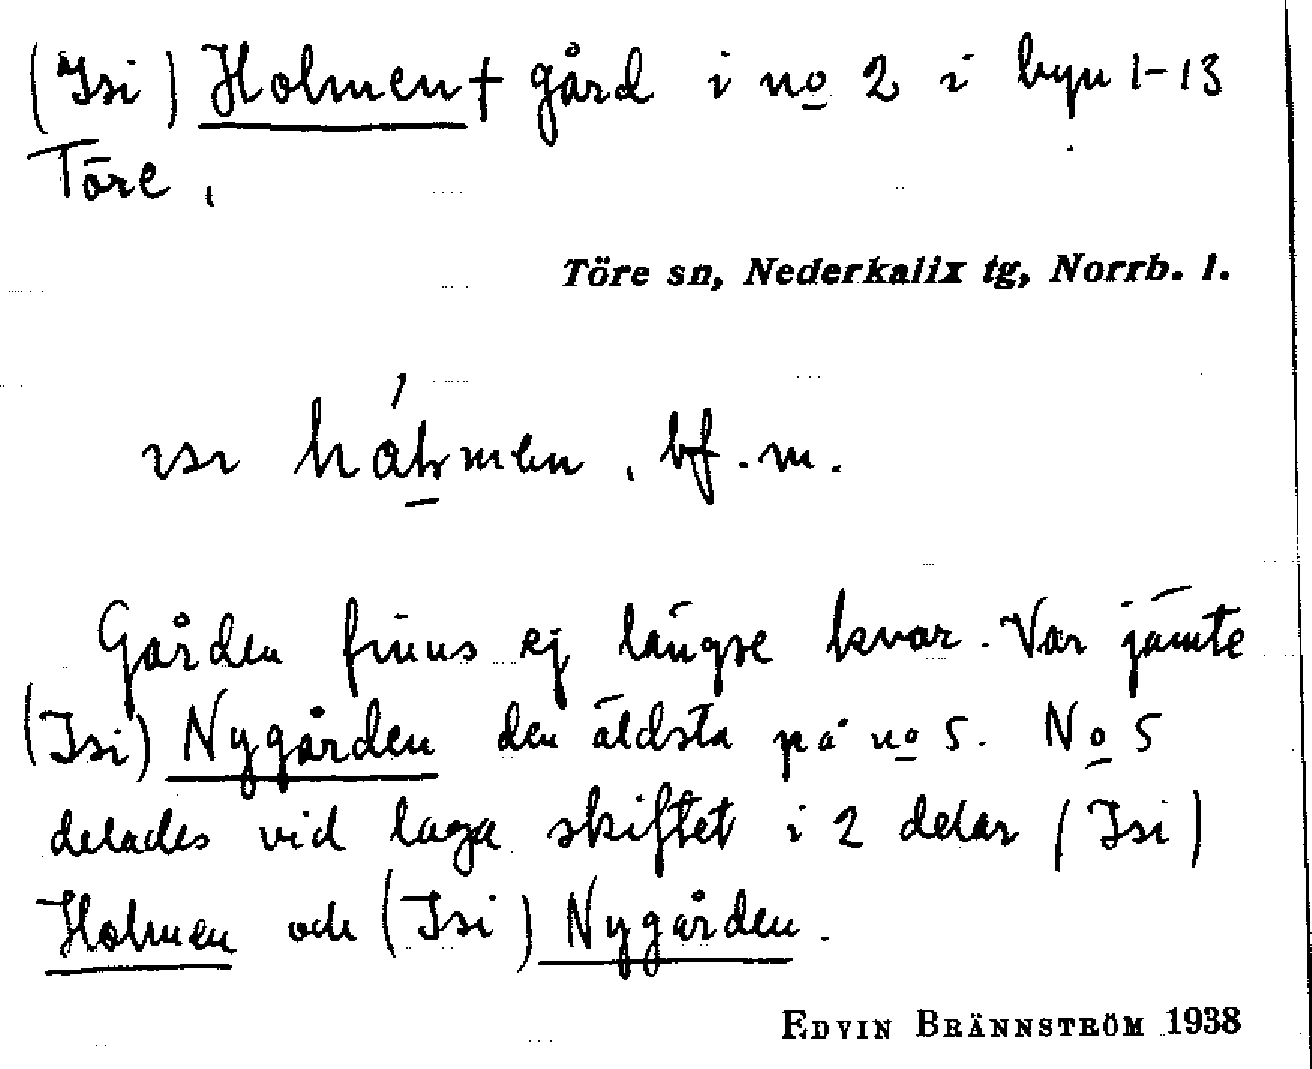 (Isi) Holmen † gård i no 2 i byn 1-13
Töre.
Töre sn, Nederkalix tg, Norrb. l.
bf. m.
Gården finns ej längre kvar. Var jämte
(Isi) Nygården den äldsta på no 5. No 5
delades vid laga skiftet i 2 delar (Isi)
Holmen och (Isi) Nygården.
EDVIN BRÄNNSTRÖM 1938